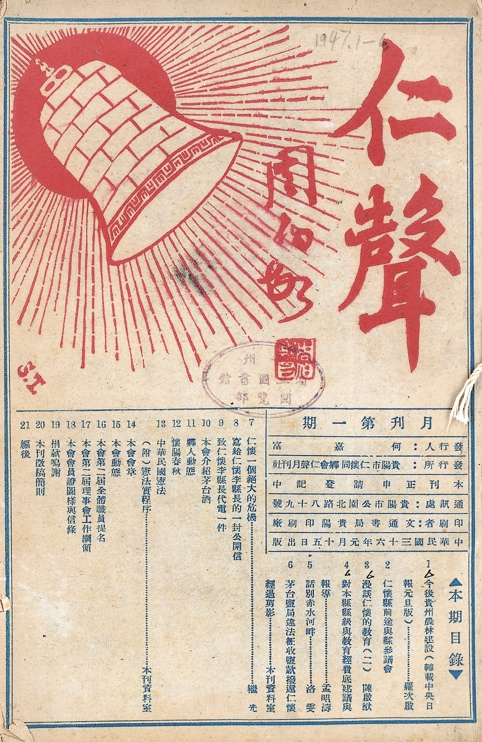 1947.1-6
仁聲
周伯敏
S.I.
月刊第一期
發行人：何嘉富
發行所：貴陽市仁懷同鄉會仁聲月刊社
本刊正申請登記中
通訊處：貴陽市公園北路八十九號
印刷者：文通書局貴陽印刷廠
中華民國三十六年元月十五日出版
▲本期目錄▼
1 今後貴州農林建設（轉載中央日
報元旦版）……羅次啟
2 仁懷縣前途與縣參議會
3 漫談仁懷的教育（二）……陳啟猷
4 對本縣縣級與教育經費底建議與
報導……孟昭濤
5 話別赤水河畔……洛雯
6 茅台鹽局違法征收鹽款撥還仁懷
經過剪影……本刊資料室
7 仁懷一個絕大的危機……繼光
8 寫給仁懷李縣長的一封公開信
9 致仁懷李縣長代電一件
10 本會介紹茅台酒
11 鄉人動態
12 懷陽春秋
13 中華民國憲法
（附）憲法實程序……本刊資料室
14 本會會章
15 本會動態
16 本會第二屆全體職員提名
17 本會第二屆理事會工作綱領
18 本會會員證圖樣與信條
19 捐款鳴謝
20 本刊徵稿簡則
21 編後